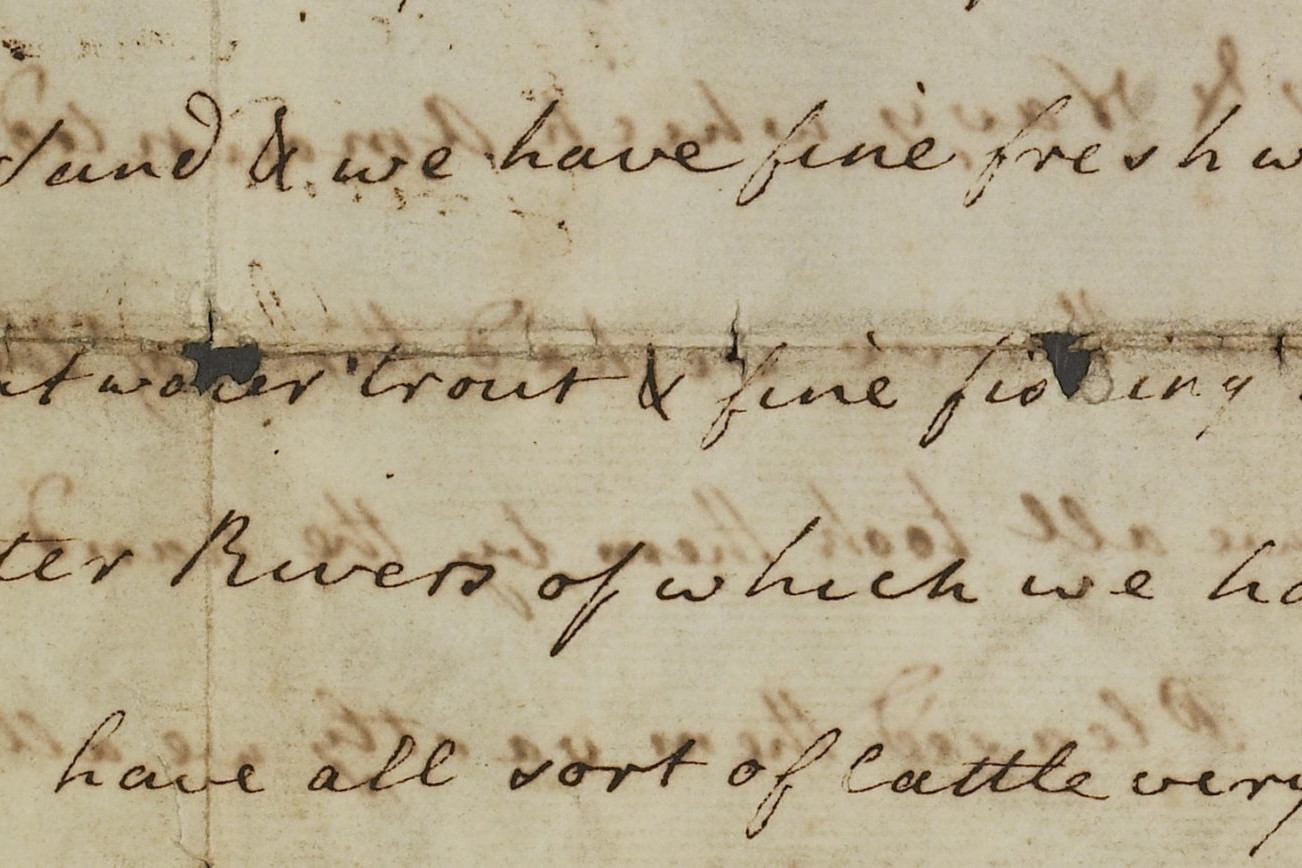 Sand & we have fine fresh w
t water trout & fine fishing
ter Rivers of which we ha
have all sort of Cattle very